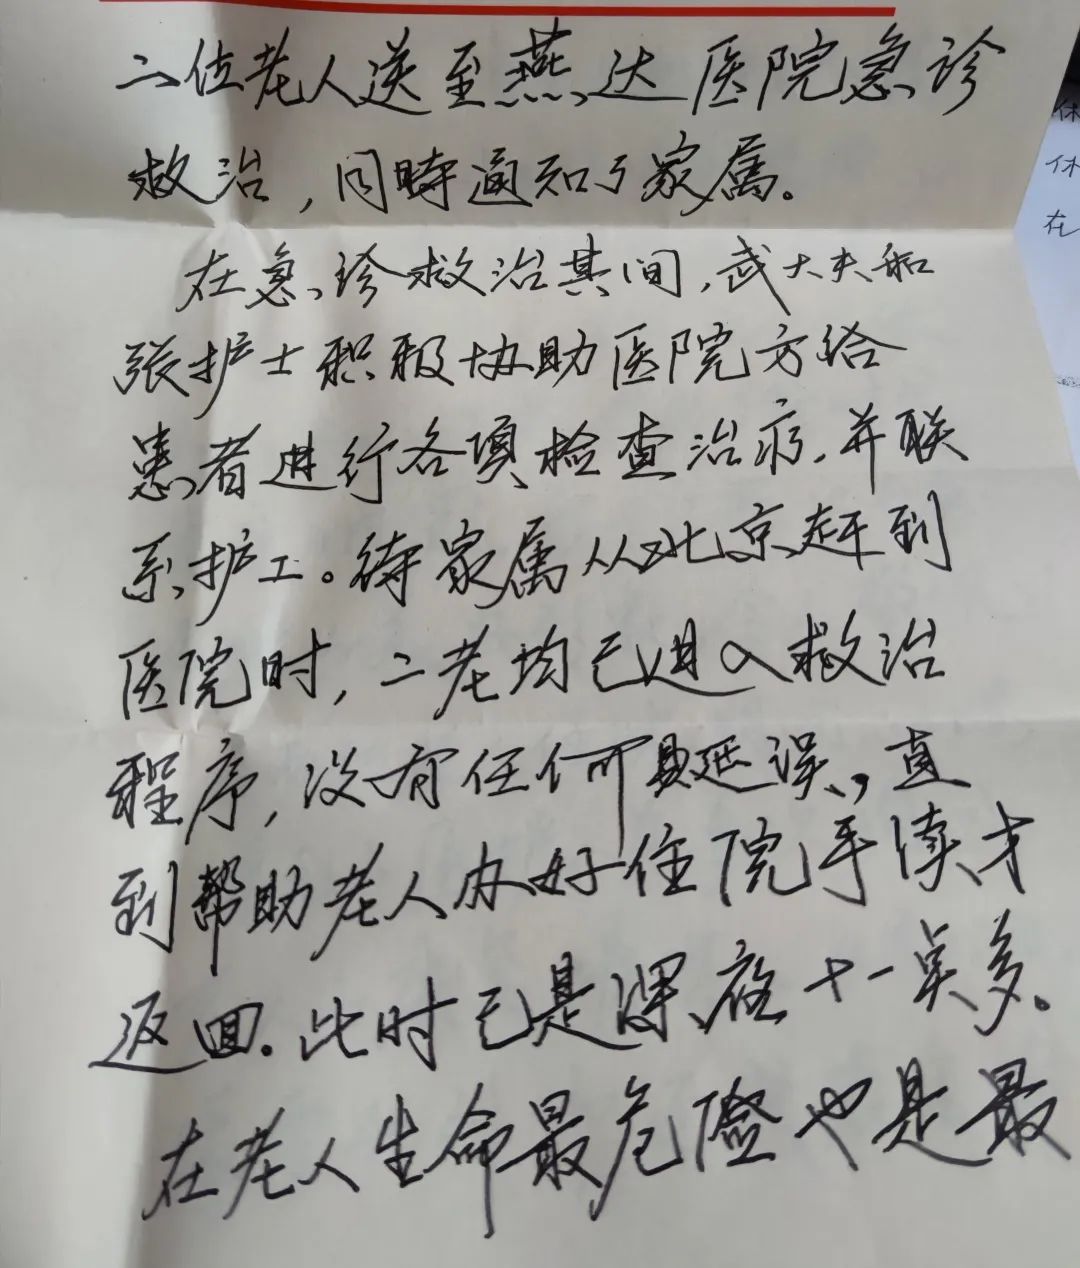 二位老人送至燕达医院急诊
救治，同時通知了家属。
在急诊救治其间，武大夫和
张护士积极协助医院方给
患者进行各项检查治疗，并联
系护工。待家属从北京赶到
医院时，二老均已进入救治
程序，没有任何延误，直
到帮助老人办好住院手续才
返回。此时已是深夜十一点多。
在老人生命最危险也是最
休
休
在